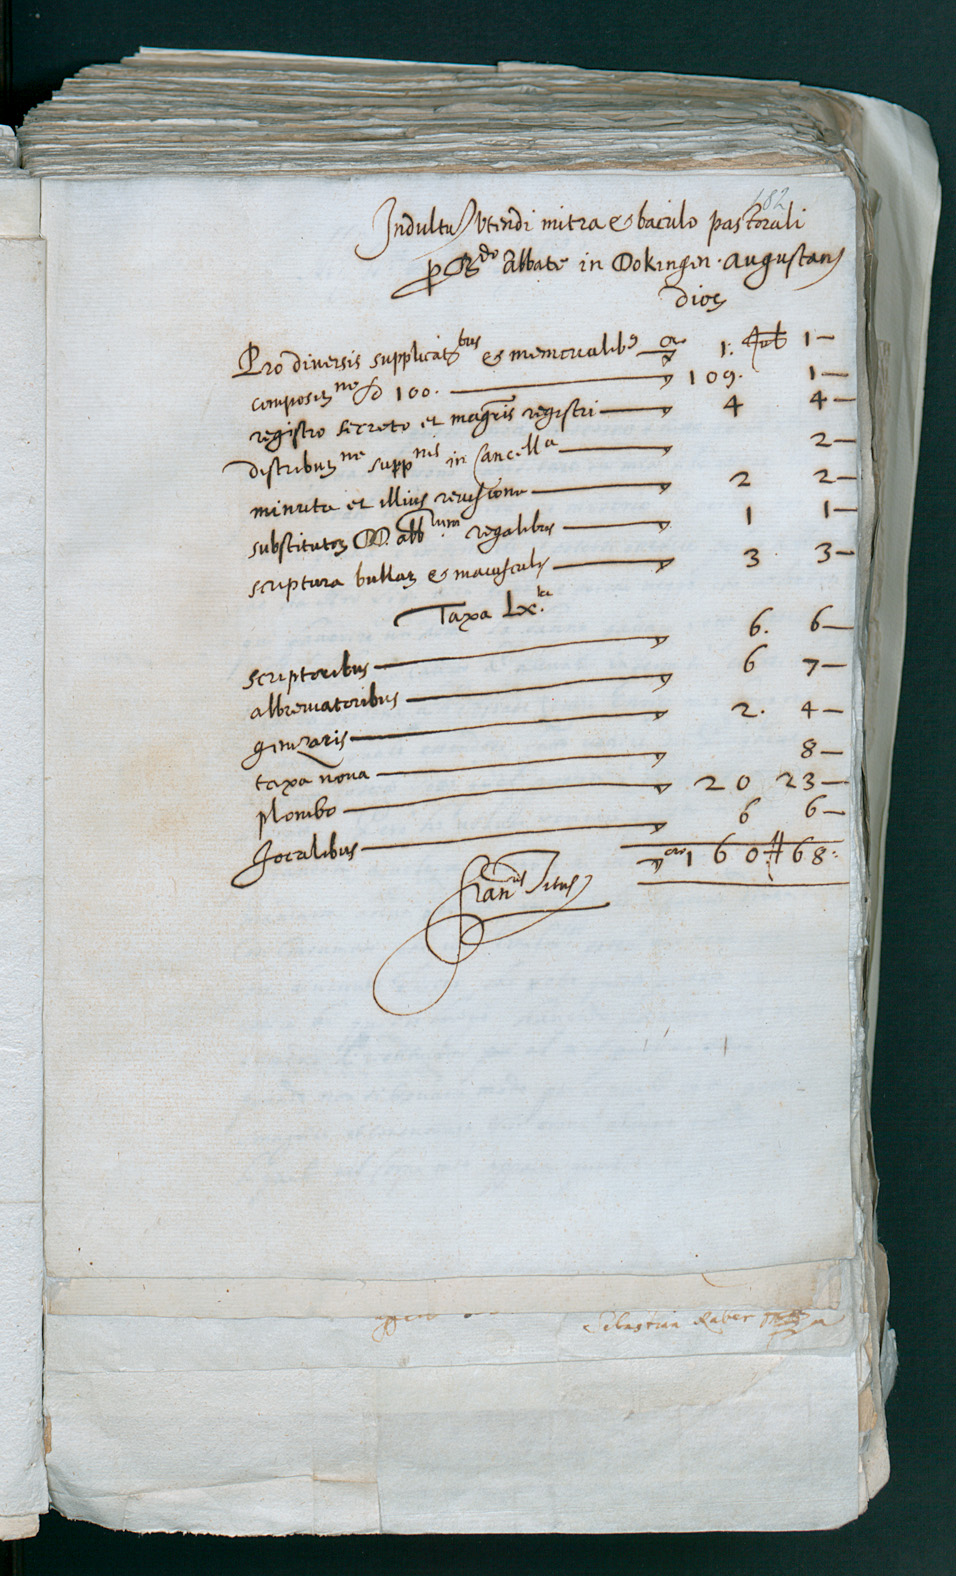 182
Indultu Vtendi mitra et baculo pastorali
p R.do Abbate in Ookingen. Augustan
dioc
Pro diversis supplicat.bus et memorialibus 1: 1
composit.ne 100. 109. 1
registro secreto et magris registri 4 4
distribut.ne supp.nis in Cancell.a 2
minuta et illius revisione 2 2
substitutor abb.rum regalibus 1 1
scriptura bullar et maiuscul 3 3
Taxa Lx.
scriptoribus 6. 6
abbreviatoribus 6 7
genizaris 2. 4
taxa nova 8
plombo 20 23
Jocalibus 6 6
160 68
Fran.cus Titus
Sebastian Raber